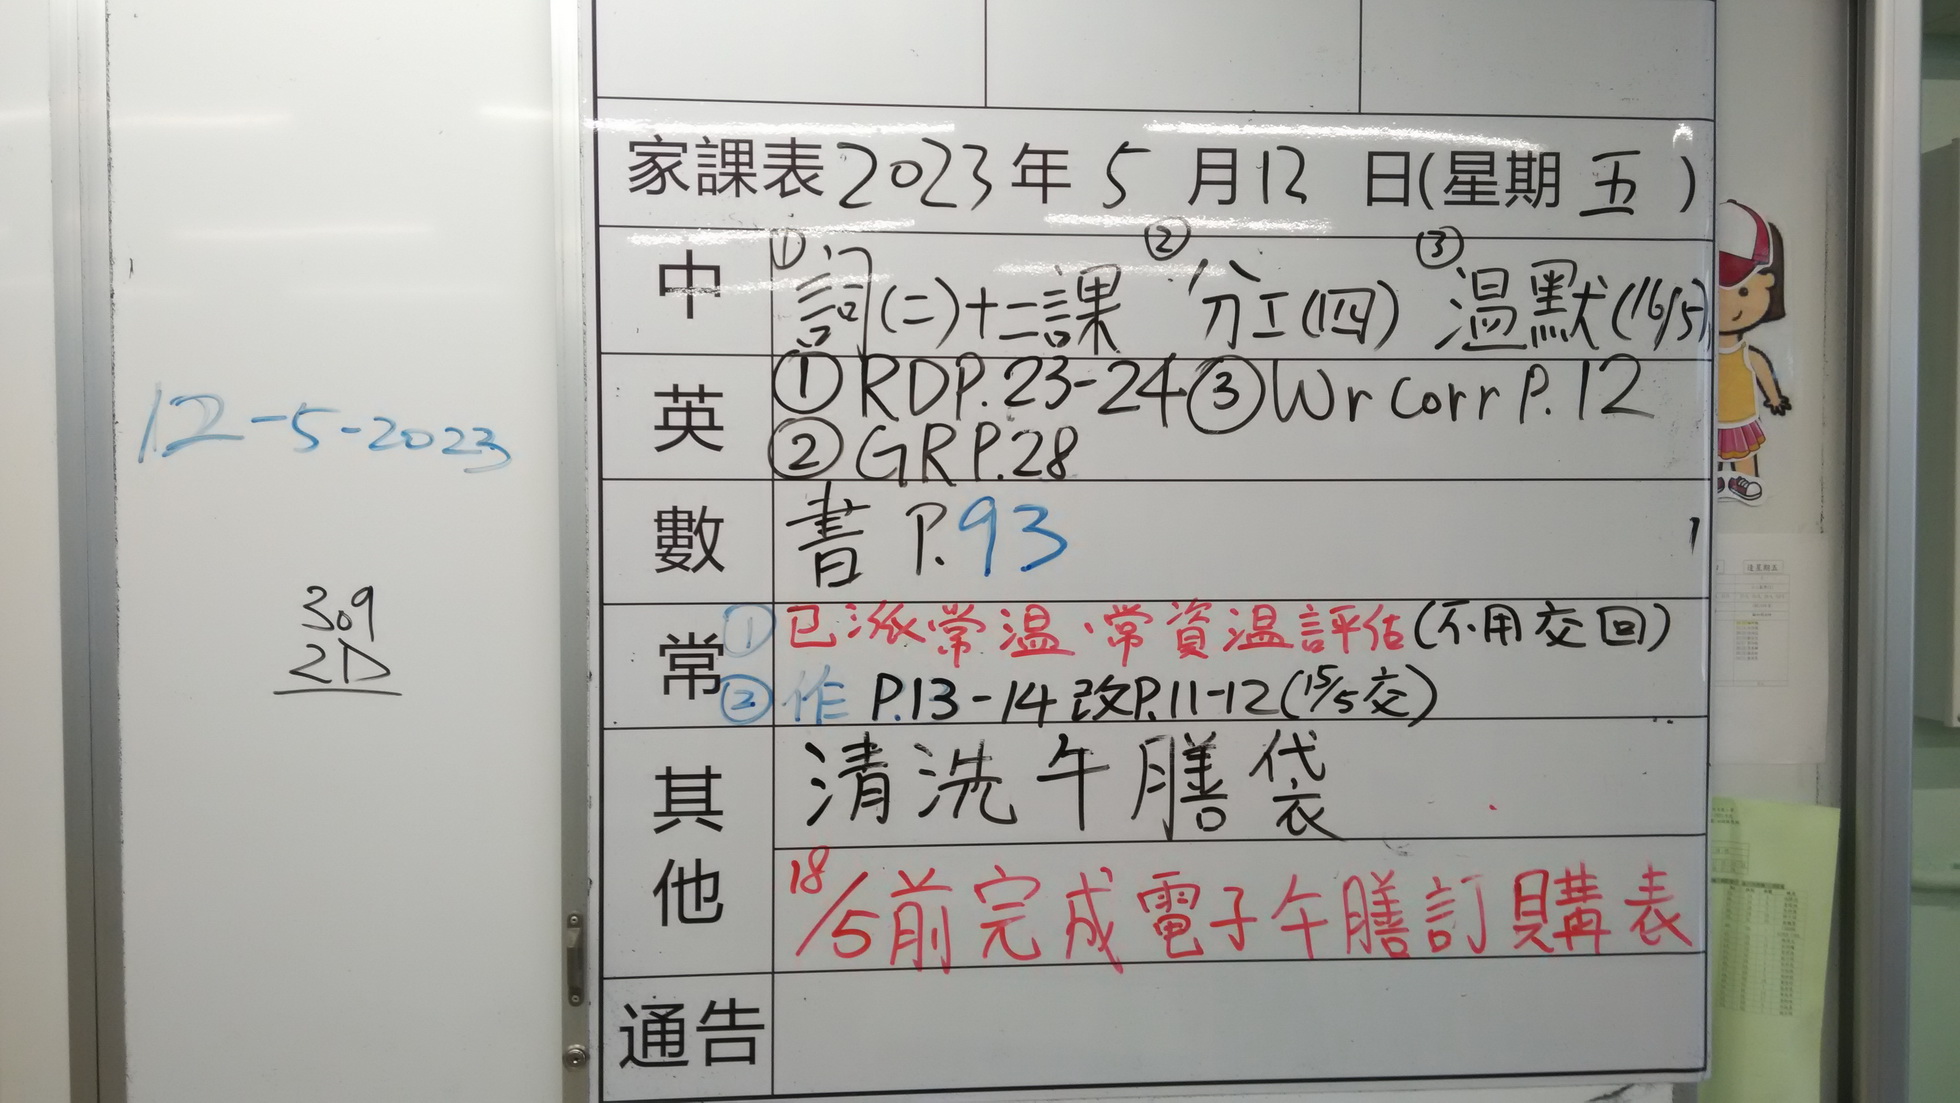 12-5-2023
309
2D
家課表2023年5月12日(星期五)
中 ①詞(二)十二課 ②分工(四) ③温默(16/5)
英 ①RDP.23-24 ③Wr Corr P.12
②GRP.28
數 書 P.93
常 ①已派常温、常資温評估(不用交回)
②作 P.13-14 改P.11-12(15/5交)
其他 清洗午膳袋
18/5前完成電子午膳訂購表
通告